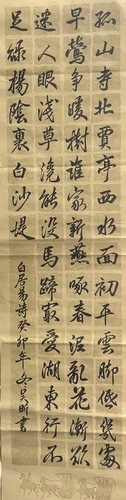 孤山寺北賈亭西水面初平雲脚低幾處
早鶯爭暖樹誰家新燕啄春泥亂花漸欲
迷人眼淺草纔能没馬蹄最愛湖東行不
足緑楊陰裏白沙堤
白居易詩癸卯年冬書